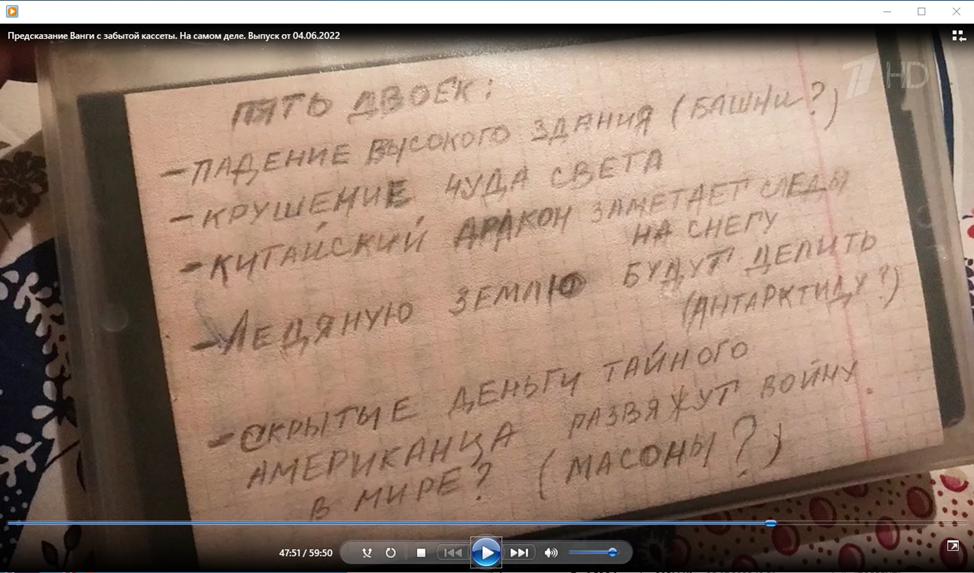 Предсказание Ванги с забытой кассеты. На самом деле. Выпуск от 04.06.2022
1 HD
ПЯТЬ ДВОЕК:
- ПАДЕНИЕ ВЫСОКОГО ЗДАНИЯ (БАШНИ?)
- КРУШЕНИЕ ЧУДА СВЕТА
- КИТАЙСКИЙ ДРАКОН ЗАМЕТАЕТ СЛЕДЫ
НА СНЕГУ
- ЛЕДЯНУЮ ЗЕМЛЮ БУДУТ ДЕЛИТЬ
(АНТАРКТИДУ?)
- СКРЫТЫЕ ДЕНЬГИ ТАЙНОГО
АМЕРИКАНЦА РАЗВЯЖУТ ВОЙНУ
В МИРЕ? (МАСОНЫ?)
47:51 / 59:50